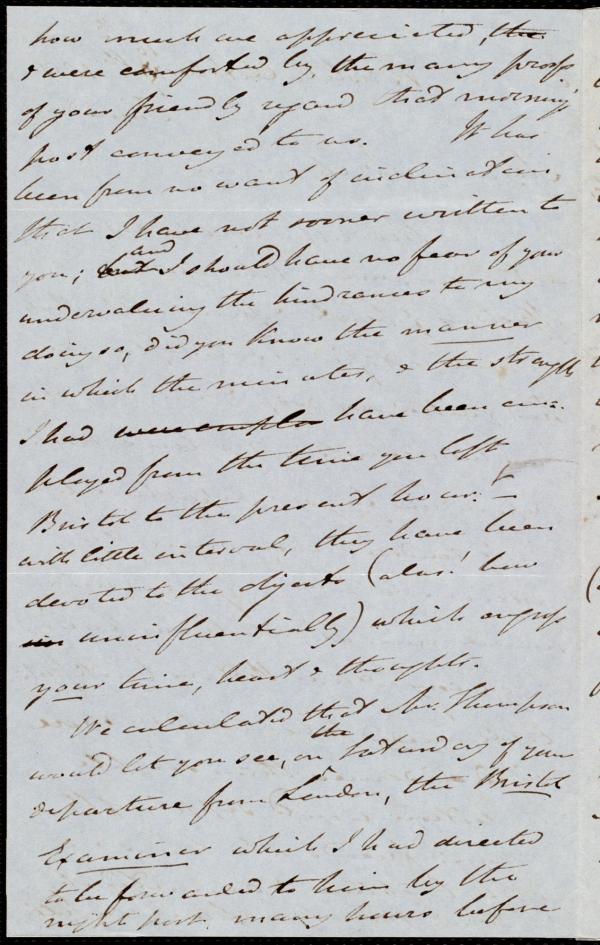 how much we appreciated, the
& were comforted by, the many proofs
of your friendly regard that morning's
post conveyed to us. It has
been from no want of inclination,
that I have not sooner written to
you; but and I should have no fear of your
undervaluing the hindrances to my
doing so, did you know the manner
in which the minutes, & the strength
I had were emplo have been em=
ployed from the time you left
Bristol to the present hour: –
with little interval, they have been
devoted to the objects (alas! how
uninfluentially) which engross
your time, heart & thoughts.
We calculated that Mr. Thompson
would let you see, on the Saturday of your
departure from London, the Bristol
Examiner which I had directed
to be forwarded to him by the
night post many hours before